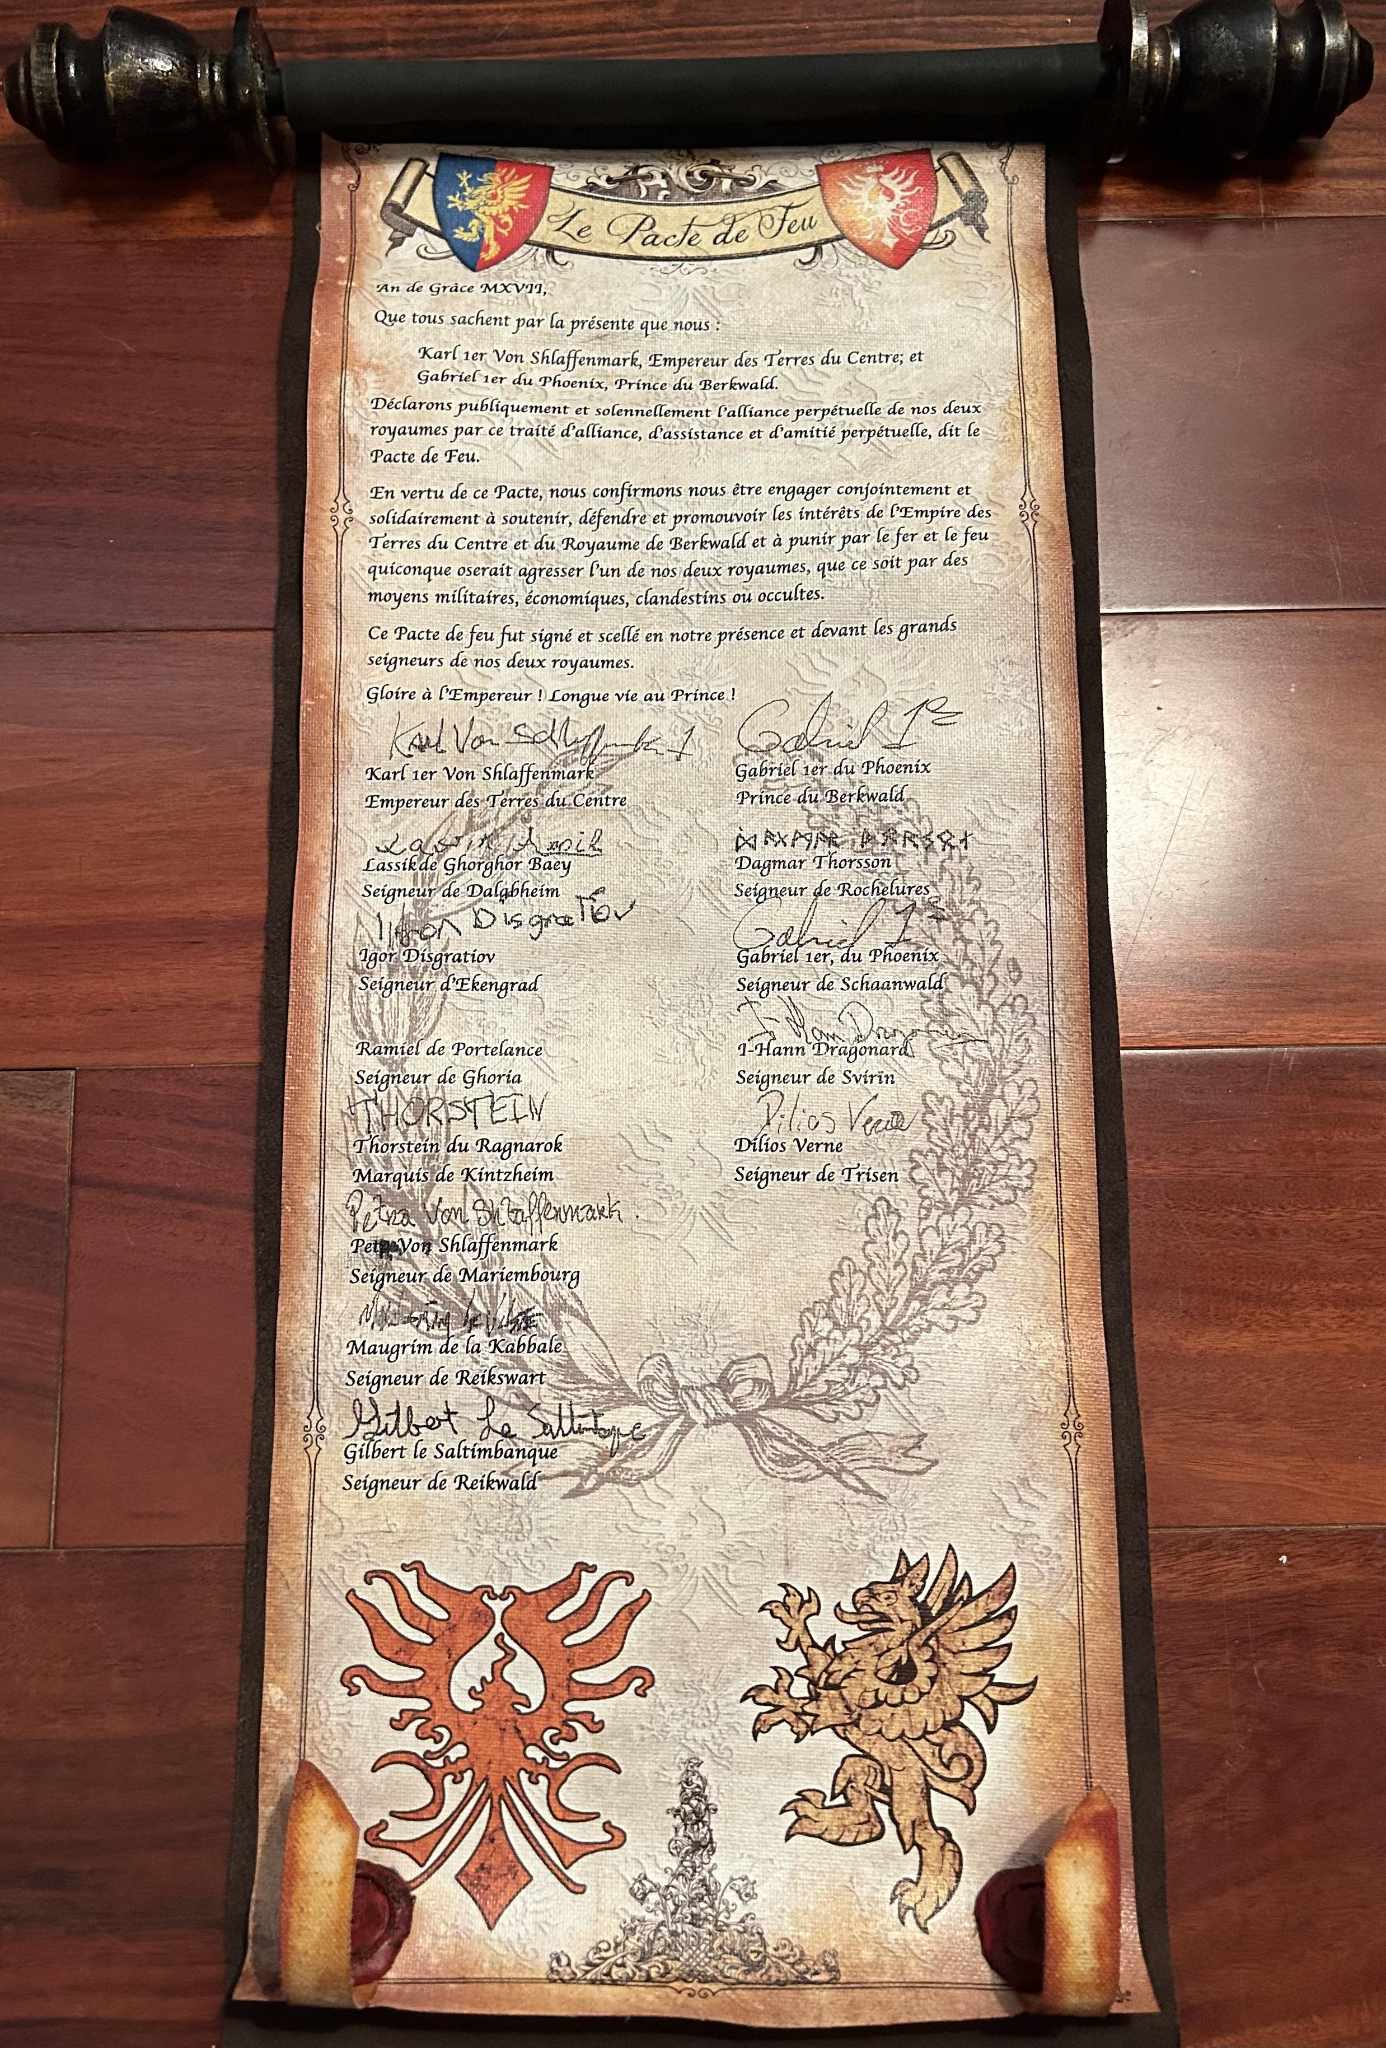 Le Pacte de Feu
An de Grâce MXVII,
Que tous sachent par la présente que nous :
Karl 1er Von Shlaffenmark, Empereur des Terres du Centre; et
Gabriel 1er du Phoenix, Prince du Berkwald.
Déclarons publiquement et solennellement l'alliance perpétuelle de nos deux
royaumes par ce traité d'alliance, d'assistance et d'amitié perpétuelle, dit le
Pacte de Feu.
En vertu de ce Pacte, nous confirmons nous être engager conjointement et
solidairement à soutenir, défendre et promouvoir les intérêts de l'Empire des
Terres du Centre et du Royaume de Berkwald et à punir par le fer et le feu
quiconque oserait agresser l'un de nos deux royaumes, que ce soit par des
moyens militaires, économiques, clandestins ou occultes.
Ce Pacte de feu fut signé et scellé en notre présence et devant les grands
seigneurs de nos deux royaumes.
Gloire à l'Empereur ! Longue vie au Prince !
Karl Von
Karl 1er Von Shlaffenmark
Empereur des Terres du Centre
Lassik de Ghorghor Baey
Seigneur de Dalgbheim
Igor Disgratiov
Igor Disgratiov
Seigneur d'Ekengrad
Ramiel de Portelance
Seigneur de Ghoria
THORSTEIN
Thorstein du Ragnarok
Marquis de Kintzheim
Petra Von Shlaffenmark.
Petra Von Shlaffenmark
Seigneur de Mariembourg
Maugrim de la Kabbale
Seigneur de Reikswart
Gilbert Le Saltimbanque
Gilbert le Saltimbanque
Seigneur de Reikwald
Gabriel 1er
Gabriel 1er du Phoenix
Prince du Berkwald
Dagmar Thorsson
Seigneur de Rochelures
Gabriel 1er
Gabriel 1er, du Phoenix
Seigneur de Schaanwald
I-Hann Dragonard
I-Hann Dragonard
Seigneur de Svirin
Dilios Verne
Dilios Verne
Seigneur de Trisen